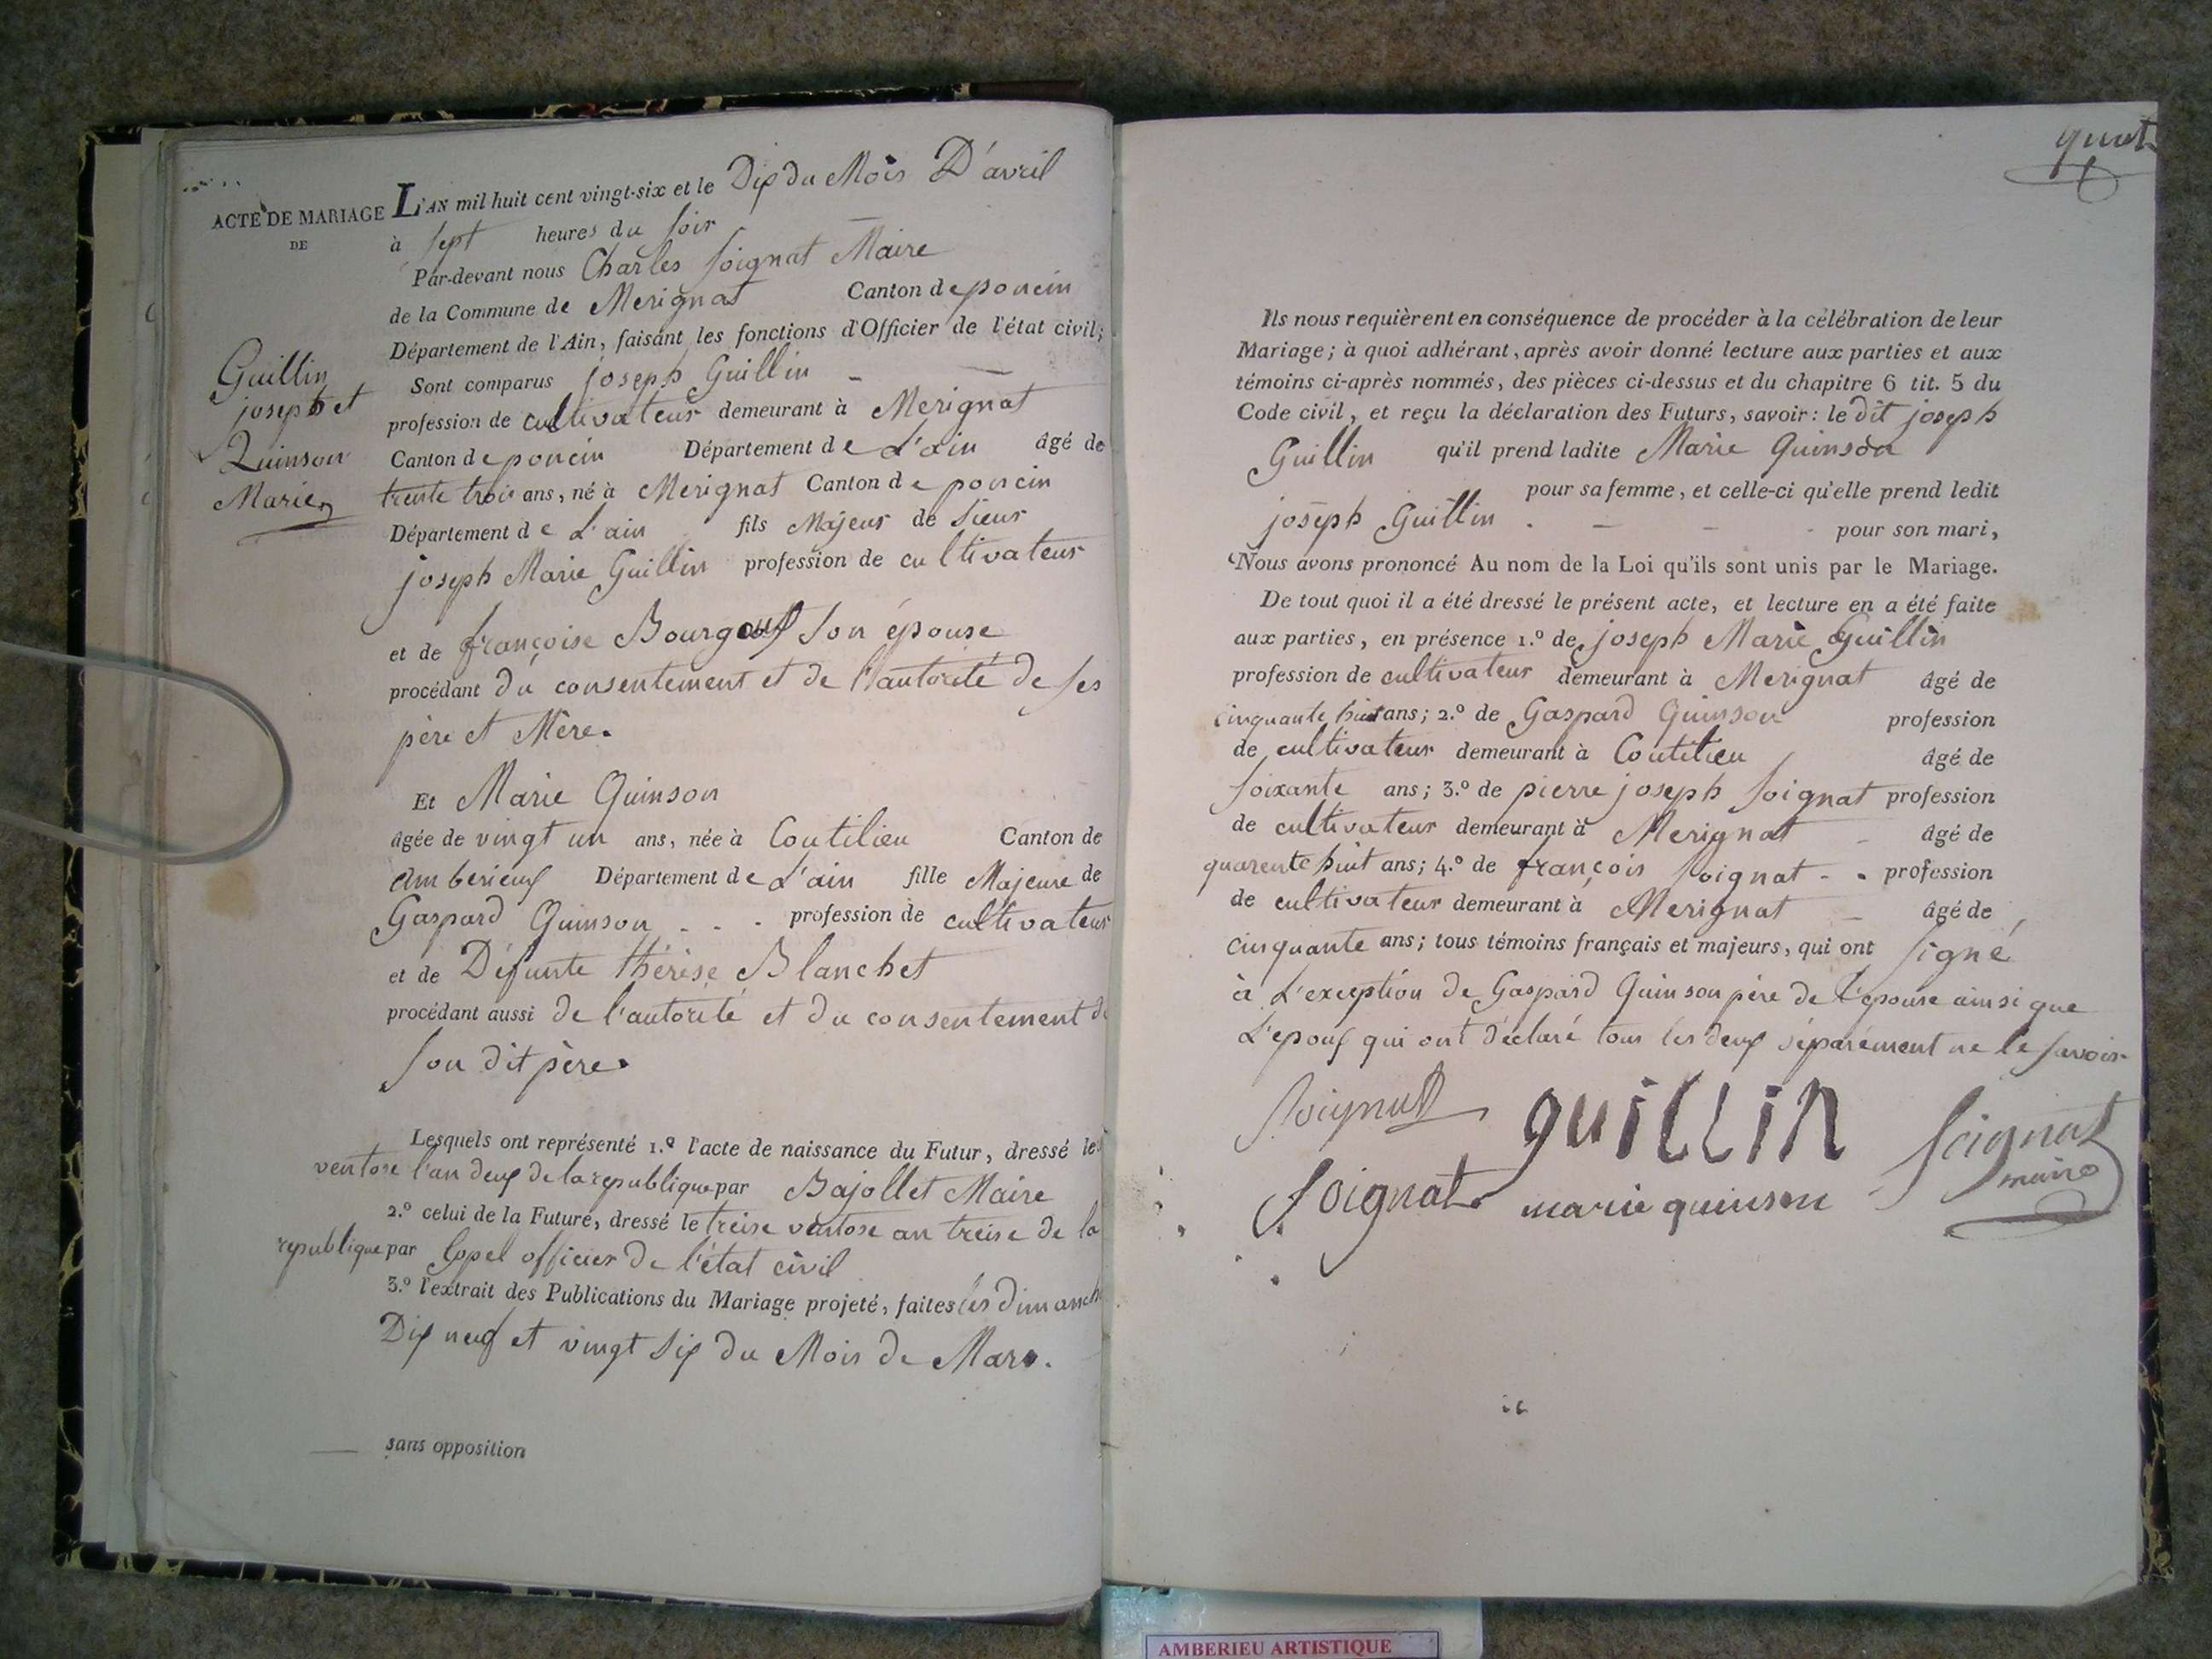 ACTE DE MARIAGE
DE
Guillin
joseph et
Quinson
Marie
L'AN mil huit cent vingt-six et le Dix du Mois D'avril
à sept heures du soir
Par-devant nous Charles Soignat Maire
de la Commune de Merignat Canton de poncin
Département de l'Ain, faisant les fonctions d'Officier de l'état civil;
Sont comparus joseph Guillin
profession de cultivateur demeurant à Merignat
Canton de poncin Département de L'ain âgé de
trente trois ans, né à Merignat Canton de poncin
Département de L'ain fils Majeur de Sieur
joseph Marie Guillin profession de cultivateur
et de françoise son épouse
procédant du consentement et de l'autorité de ses
père et Mère.
Et Marie Quinson
âgée de vingt un ans, née à Coutilieu Canton de
Amberieux Département de L'ain fille Majeure de
Gaspard Quinson profession de cultivateur
et de Défunte thérèse Blanchet
procédant aussi de l'autorité et du consentement de
son dit père.
Lesquels ont représenté 1.º l'acte de naissance du Futur, dressé le
ventose l'an deux de la republique par Bajollet Maire
2.º celui de la Future, dressé le treise ventose an treise de la
republique par officier de l'état civil
3.º l'extrait des Publications du Mariage projeté, faites les dimanch
Dix neuf et vingt six du Mois de Mars.
sans opposition
Ils nous requièrent en conséquence de procéder à la célébration de leur
Mariage; à quoi adhérant, après avoir donné lecture aux parties et aux
témoins ci-après nommés, des pièces ci-dessus et du chapitre 6 tit. 5 du
Code civil, et reçu la déclaration des Futurs, savoir: le dit joseph
Guillin qu'il prend ladite Marie Quinson
pour sa femme, et celle-ci qu'elle prend ledit
joseph Guillin pour son mari,
Nous avons prononcé Au nom de la Loi qu'ils sont unis par le Mariage.
De tout quoi il a été dressé le présent acte, et lecture en a été faite
aux parties, en présence 1.º de joseph Marie Guillin
profession de cultivateur demeurant à Merignat âgé de
cinquante huit ans; 2.º de Gaspard Quinson profession
de cultivateur demeurant à Coutilieu âgé de
soixante ans; 3.º de pierre joseph Soignat profession
de cultivateur demeurant à Merignat âgé de
quarente huit ans; 4.º de françois Soignat profession
de cultivateur demeurant à Merignat âgé de
cinquante ans; tous témoins français et majeurs, qui ont signé
à L'exception de Gaspard Quinson père de l'epouse ainsi que
L'epoux qui ont déclaré tous les deux séparément ne le savoir
Soignat guillin Soignat
maire
Soignat marie quinson
AMBERIEU ARTISTIQUE